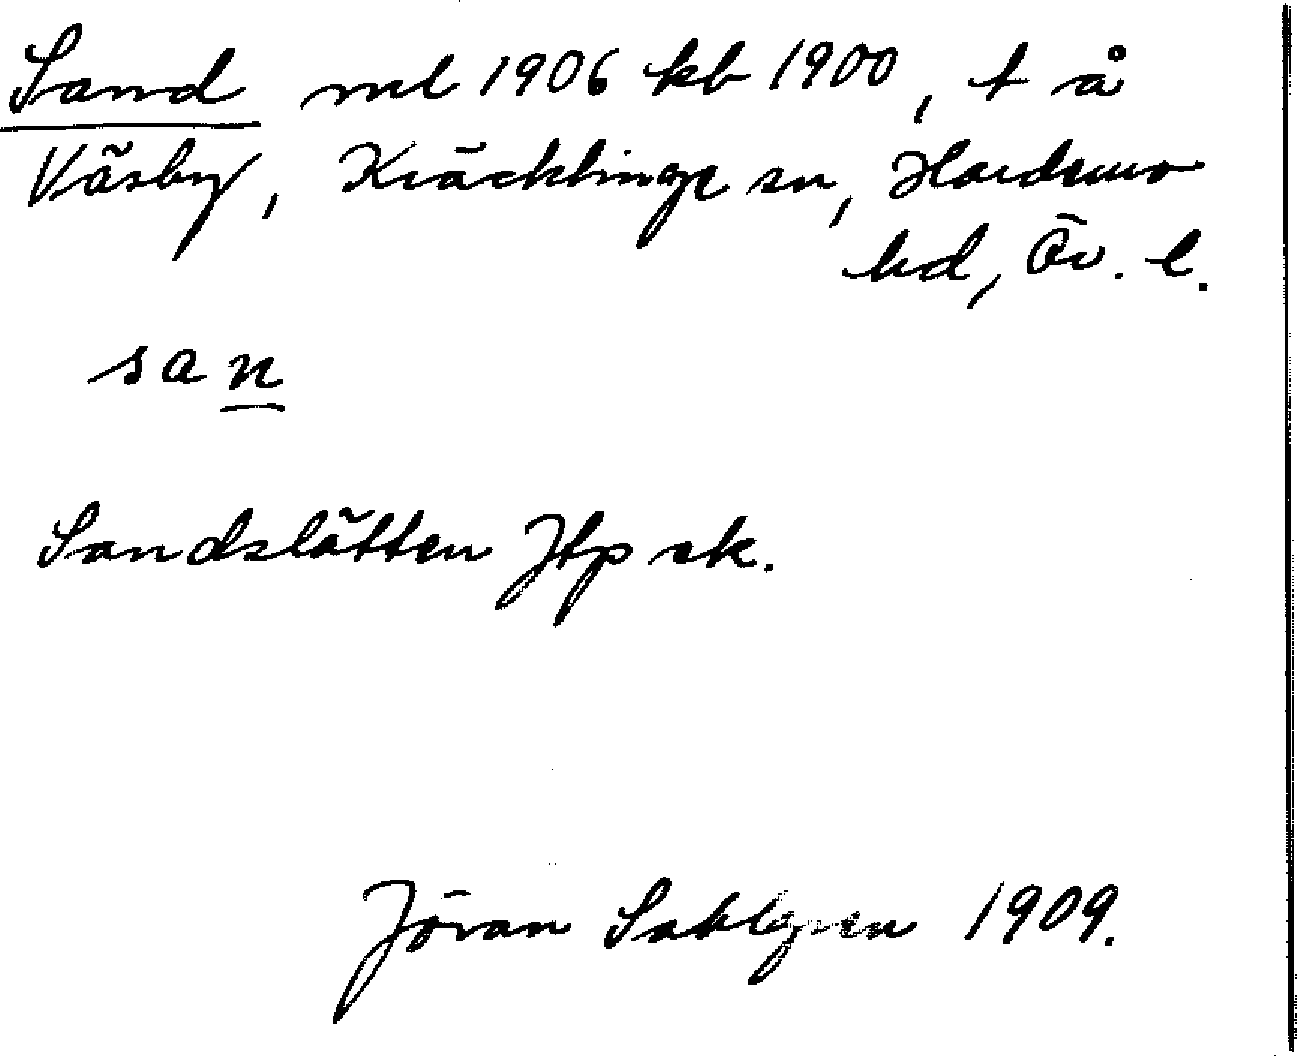 Sand ml 1906 kb 1900, t å
Väsby, Kräcklinge sn, Hardemo
hd, Ör. l.
san
Sandslätten Jtp sk.
Jöran Sahlgren 1909.